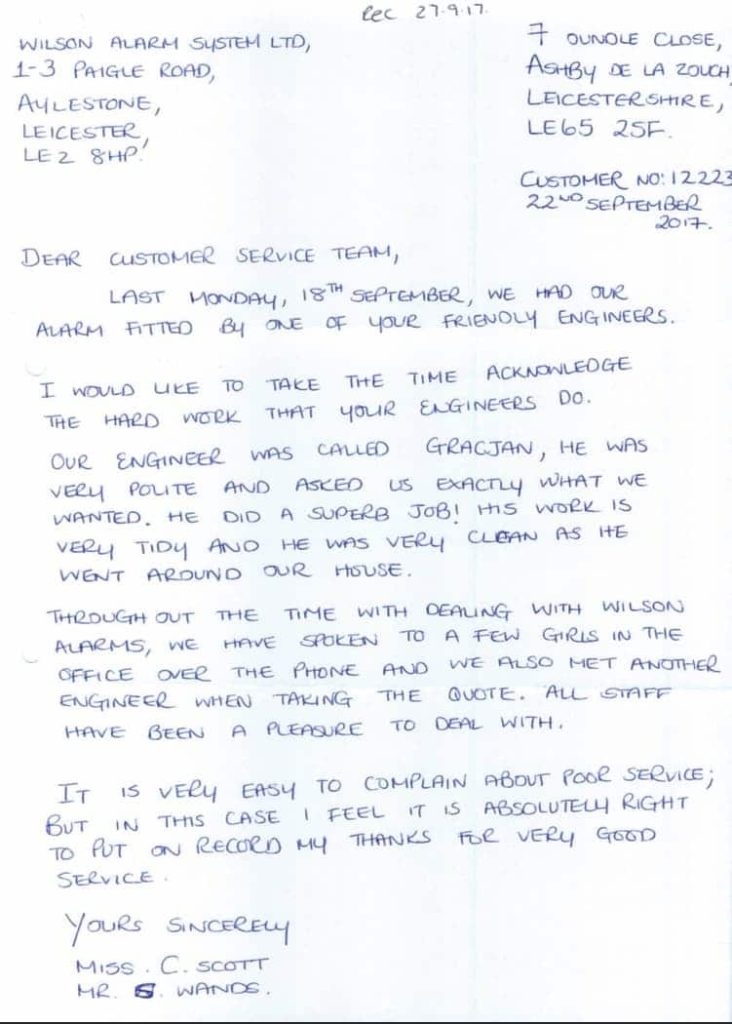 Rec 27.9.17.
WILSON ALARM SYSTEM LTD,
1-3 PAIGLE ROAD,
AYLESTONE,
LEICESTER,
LE2 8HP.
7 OUNDLE CLOSE,
ASHBY DE LA ZOUCH,
LEICESTERSHIRE,
LE65 2SF.
CUSTOMER NO: 12223
22ND SEPTEMBER
2017.
DEAR CUSTOMER SERVICE TEAM,
LAST MONDAY, 18TH SEPTEMBER, WE HAD OUR
ALARM FITTED BY ONE OF YOUR FRIENDLY ENGINEERS.
I WOULD LIKE TO TAKE THE TIME ACKNOWLEDGE
THE HARD WORK THAT YOUR ENGINEERS DO.
OUR ENGINEER WAS CALLED GRACJAN, HE WAS
VERY POLITE AND ASKED US EXACTLY WHAT WE
WANTED. HE DID A SUPERB JOB! HIS WORK IS
VERY TIDY AND HE WAS VERY CLEAN AS HE
WENT AROUND OUR HOUSE.
THROUGH OUT THE TIME WITH DEALING WITH WILSON
ALARMS, WE HAVE SPOKEN TO A FEW GIRLS IN THE
OFFICE OVER THE PHONE AND WE ALSO MET ANOTHER
ENGINEER WHEN TAKING THE QUOTE. ALL STAFF
HAVE BEEN A PLEASURE TO DEAL WITH.
IT IS VERY EASY TO COMPLAIN ABOUT POOR SERVICE;
BUT IN THIS CASE I FEEL IT IS ABSOLUTELY RIGHT
TO PUT ON RECORD MY THANKS FOR VERY GOOD
SERVICE.
YOURS SINCERELY
MISS. C. SCOTT
MR. S. WANDS.